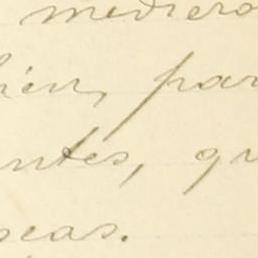 mediero
hien, par
antes, qu
seas.